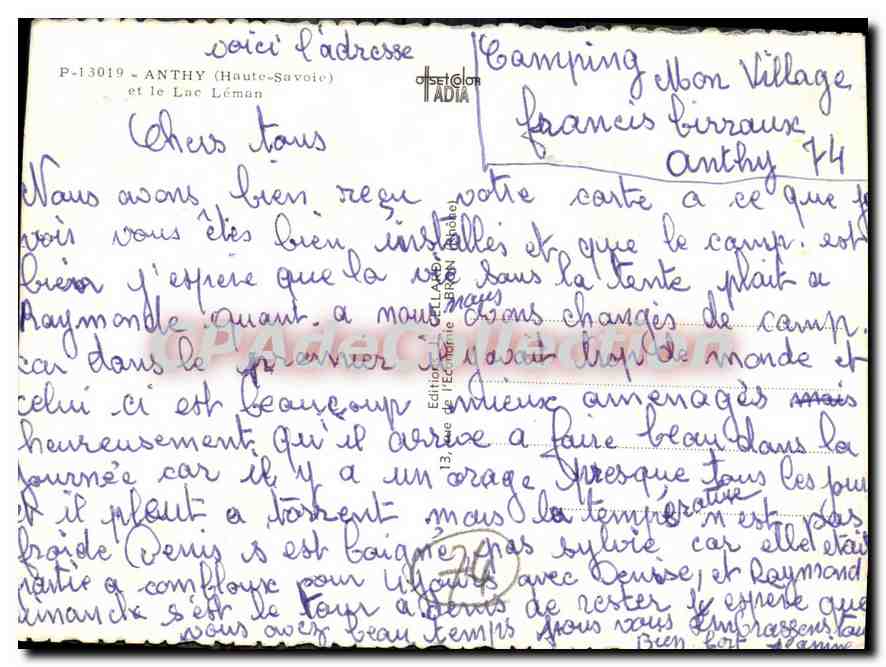 voici l'adresse
P-13019 - ANTHY (Haute-Savoie)
et le Lac Léman
OFFSETCOLOR
ADIA
Camping
Mon Village
francis birraux
anthy 74
Chers tous
Nous avons bien reçu votre carte a ce que je
vois vous êtes bien installés et que le camp. est
bien j'espère que la vie sous la tente plait a
Raymonde quant. a nous nous avons changés de camp.
car dans le premier il y avait trop de monde et
celui ci est beaucoup mieux aménagés mais
heureusement qu'il arrive a faire beau dans la
journée car il y a un orage presque tous les jours
et il pleut a torrent mais la température n'est pas
froide Denis s est baigné pas sylvie car elle etait
partie a combloux pour 4 jours avec Denise, et Raymond
dimanche s'est le tour a denis de rester j'espere que
vous avez beau temps nous vous embrassons tous
Bien fort
74
Edition
13, rue de l'Economie - BRON (Rhône)
CPAdeCollection